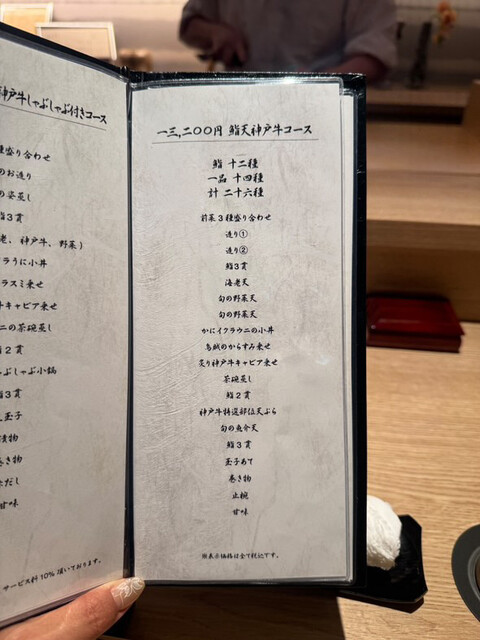 神戸牛しゃぶしゃぶ付きコース
種盛り合わせ
のお造り
の姿蒸し
鮨3貫
老、神戸牛、野菜)
クラうに小丼
ラスミ乗せ
牛キャビア乗せ
ニの茶碗蒸し
鮨2貫
ゃぶしゃぶ小鍋
鮨3貫
玉子
漬物
巻き物
だし
甘味
サービス料10%頂いております。
一三,二〇〇円 鮨天神戸牛コース
鮨 十二種
一品 十四種
計 二十六種
前菜3種盛り合わせ
造り①
造り②
鮨3貫
海老天
旬の野菜天
旬の野菜天
かにイクラウニの小丼
烏賊のからすみ乗せ
炙り神戸牛キャビア乗せ
茶碗蒸し
鮨2貫
神戸牛特選部位天ぷら
旬の魚介天
鮨3貫
玉子あて
巻き物
止椀
甘味
※表示価格は全て税込です。